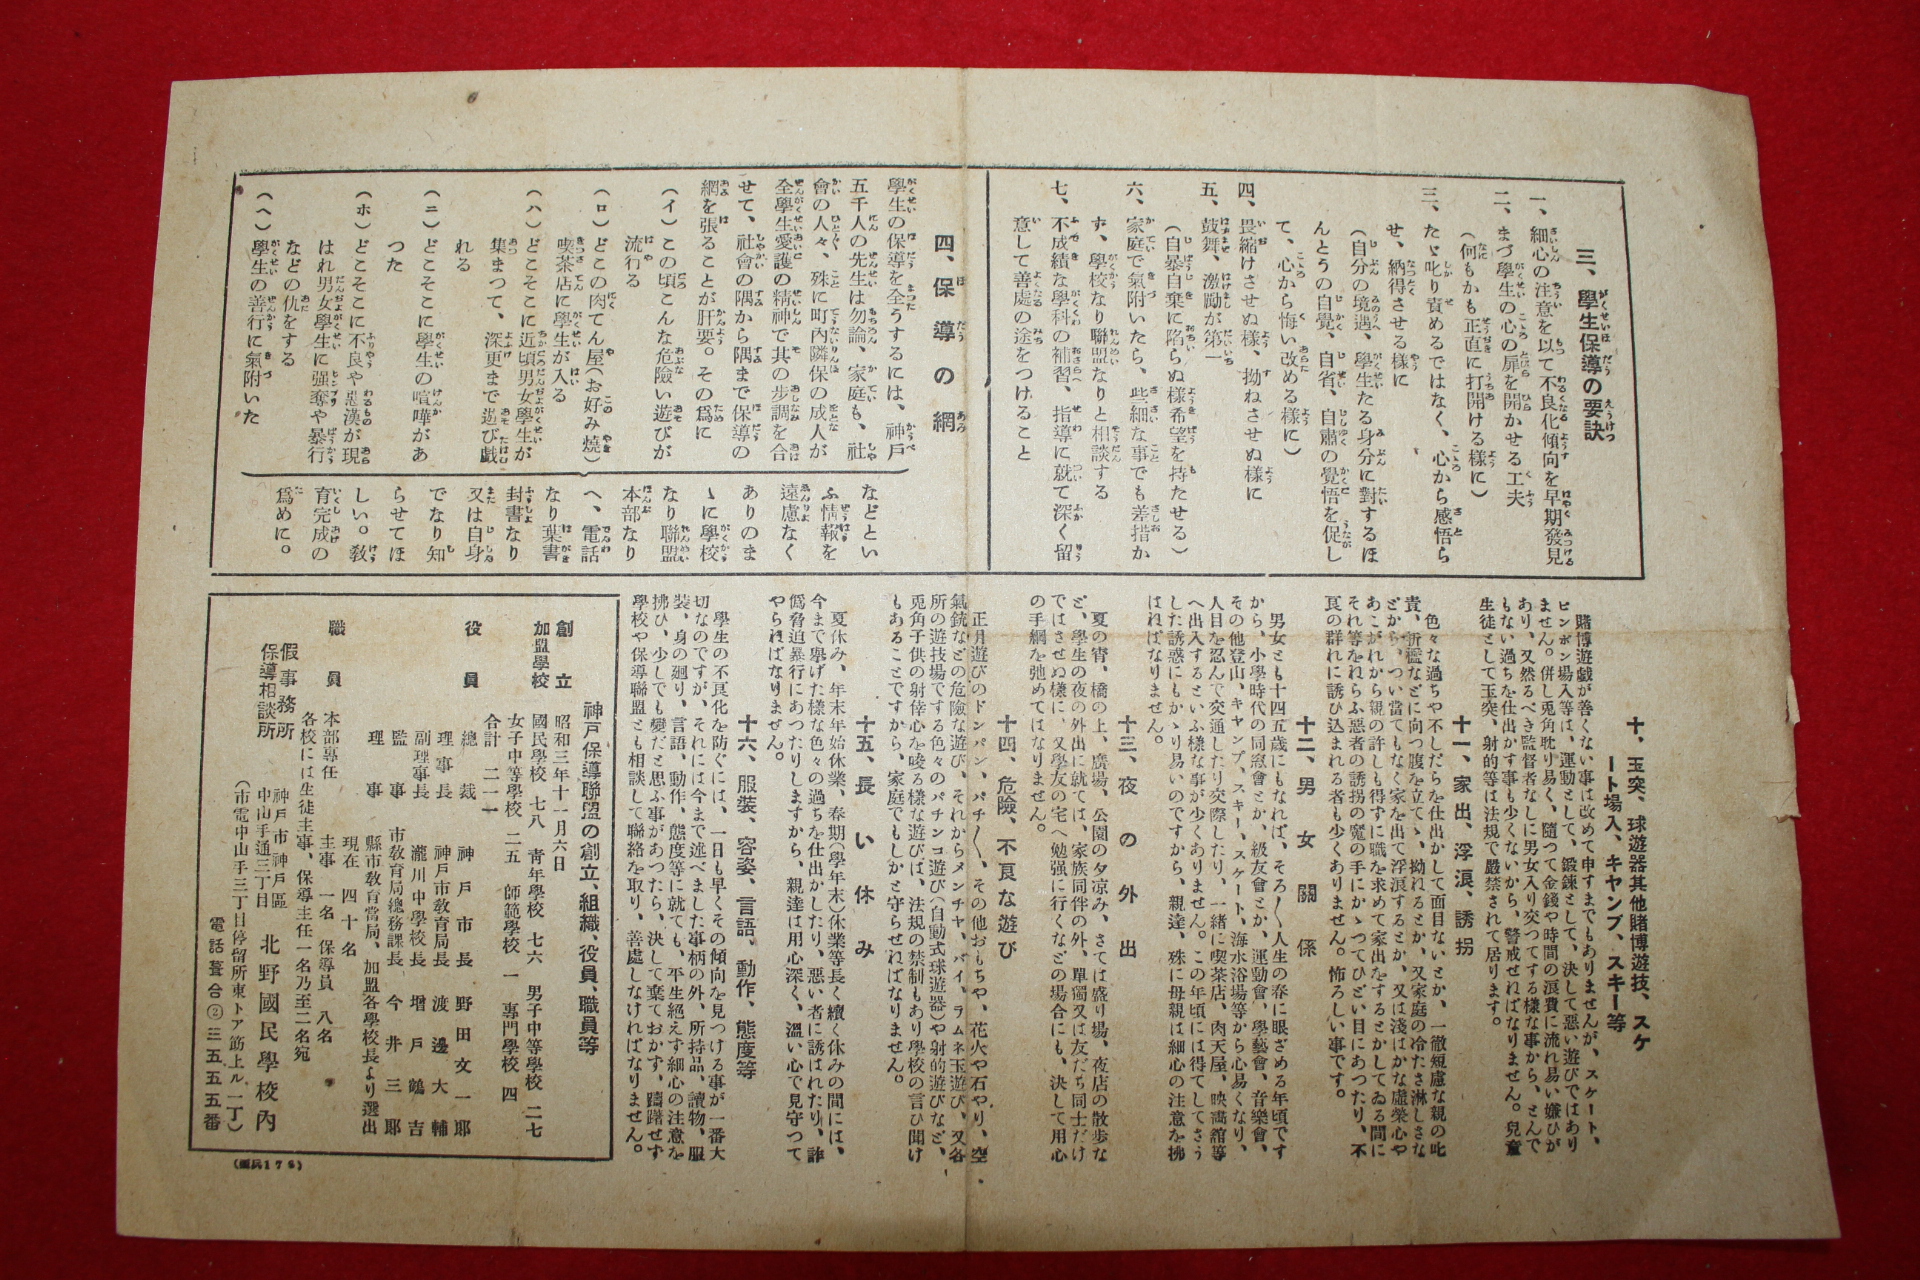 三、學生保導の要訣
一、細心の注意を以て不良化傾向を早期發見
二、まづ學生の心の扉を開かせる工夫
（何もかも正直に打開ける樣に）
三、たゞ叱り責めるではなく、心から感悟ら
せ、納得させる樣に
（自分の境遇、學生たる身分に對するほ
んとうの自覺、自省、自肅の覺悟を促し
て、心から悔い改める樣に）
四、畏縮けさせぬ樣、拗ねさせぬ樣に
五、鼓舞、激勵が第一
（自暴自棄に陷らぬ樣希望を持たせる）
六、家庭で氣附いたら、些細な事でも差措か
ず、學校なり聯盟なりと相談する
七、不成績な學科の補習、指導に就て深く留
意して善處の途をつけること
四、保導の網
學生の保導を全うするには、神戶
五千人の先生は勿論、家庭も、社
會の人々、殊に町內隣保の成人が
全學生愛護の精神で其の步調を合
せて、社會の隅から隅まで保導の
網を張ることが肝要。その爲に
（イ）この頃こんな危險い遊びが
流行る
（ロ）どこの肉てん屋（お好み燒）
喫茶店に學生が入る
（ハ）どこそこに近頃男女學生が
集まつて、深更まで遊び戲
れる
（ニ）どこそこに學生の喧嘩があ
つた
（ホ）どこそこに不良や惡漢が現
はれ男女學生に强奪や暴行
などの仇をする
（ヘ）學生の善行に氣附いた
などとい
ふ情報を
遠慮なく
ありのま
ゝに學校
なり聯盟
本部なり
へ、電話
なり葉書
封書なり
又は自身
でなり知
らせてほ
しい。敎
育完成の
爲めに。
十、玉突、球遊器其他賭博遊技、スケ
ート場入、キャンプ、スキー等
賭博遊戲が善くない事は改めて申すまでもありませんが、スケート、
ピンポン場入等は、運動として、鍛鍊として、決して惡い遊びではあり
ません。併し兎角耽り易く、隨つて金錢や時間の浪費に流れ易い嫌ひが
あり、又然るべき監督者なしに男女入り交つてする樣な事から、とんで
もない過ちを仕出かす事も少くないから、警戒せねばなりません。兒童
生徒として玉突、射的等は法規で嚴禁されて居ります。
十一、家出、浮浪、誘拐
色々な過ちや不しだらを仕出かして面目ないとか、一徹短慮な親の叱
責、折檻などに向つ腹を立てゝ、拗れるとか、又家庭の冷たさ淋しさな
どから、つい當てもなく家を出て浮浪するとか、又は淺はかな虛榮心や
あこがれから親の許しも得ずに職を求めて家出をするとかしてゐる間に
それ等をねらふ惡者の誘拐の魔の手にかゝつてひどい目にあつたり、不
良の群れに誘ひ込まれる者も少くありません。怖ろしい事です。
十二、男女關係
男女とも十四五歲にもなれば、そろ〳〵人生の春に眼ざめる年頃です
から、小學時代の同窓會とか、級友會とか、運動會、學藝會、音樂會、
その他登山、キャンプ、スキー、スケート、海水浴場等から心易くなり、
人目を忍んで交通したり交際したり、一緖に喫茶店、肉天屋、映畵館等
へ出入するといふ樣な事が少くありません。この年頃には得てしてさう
した誘惑にもかゝり易いのですから、親達、殊に母親は細心の注意を拂
はねばなりません。
十三、夜の外出
夏の宵、橋の上、廣場、公園の夕涼み、さては盛り場、夜店の散步な
ど、學生の夜の外出に就ては、家族同伴の外、單獨又は友だち同士だけ
ではさせぬ樣に、又學友の宅へ勉强に行くなどの場合にも、決して用心
の手綱を弛めてはなりません。
十四、危險、不良な遊び
正月遊びのドンパン、パチ〳〵、その他おもちや、花火や石やり、空
氣銃などの危險な遊び、それからメンチヤ、バイ、ラムネ玉遊び、又各
所の遊技場でする色々のパチンコ遊び（自動式球遊器）や射的遊びなど、
兎角子供の射倖心を唆る樣な遊びは、法規の禁制もあり學校の言ひ聞け
もあることですから、家庭でもしかと守らせねばなりません。
十五、長い休み
夏休み、年末年始休業、春期（學年末）休業等長く續く休みの間には、
今まで擧げた樣な色々の過ちを仕出かしたり、惡い者に誘はれたり、詐
僞脅迫暴行にあつたりしますから、親達は用心深く、溫い心で見守つて
やらねばなりません。
十六、服裝、容姿、言語、動作、態度等
學生の不良化を防ぐには、一日も早くその傾向を見つける事が一番大
切なのですが、それには今まで述べました事柄の外、所持品、讀物、服
裝、身の廻り、言語、動作、態度等に就ても、平生絕えず細心の注意を
拂ひ、少しでも變だと思ふ事があつたら、決して棄ておかず、躊躇せず
學校や保導聯盟とも相談して聯絡を取り、善處しなければなりません。
神戶保導聯盟の創立、組織、役員、職員等
創立 昭和三年十一月六日
加盟學校 國民學校 七八 靑年學校 七六 男子中等學校 二七
女子中等學校 二五 師範學校 一 專門學校 四
合計 二一一
役員 總裁 神戶市長 野田文一郞
理事長 神戶市敎育局長 渡邊大輔
副理事長 瀧川中學校長 增戶鶴吉
監事 市敎育局總務課長 今井三郞
理事 縣市敎育當局、加盟各學校長より選出
現在 四十名
職員 本部專任 主事 一名 保導員 八名
各校には生徒主事、保導主任一名乃至二名宛
假事務所
保導相談所
神戶市神戶區
中山手通三丁目 北野國民學校內
（市電中山手三丁目停留所東トア筋上ル一丁）
電話葺合②三五五五番